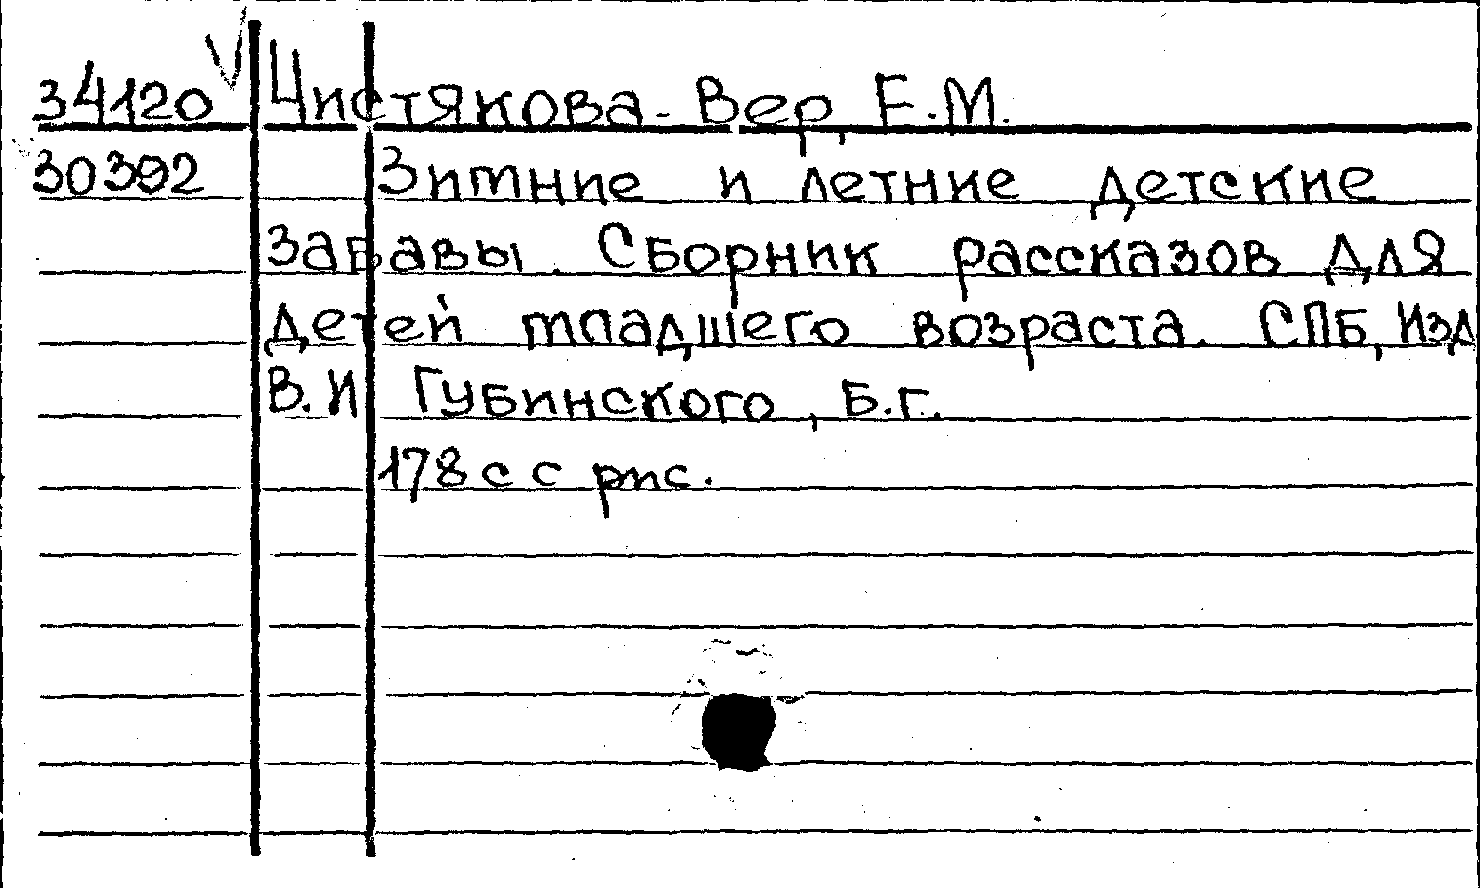 34120 Чистякова-Вер, Е.М.
30392 Зимние и летние детские
забавы. Сборник рассказов для
детей младшего возраста. СПБ, Изд
В.И Губинского, Б.г.
178 с с рис.